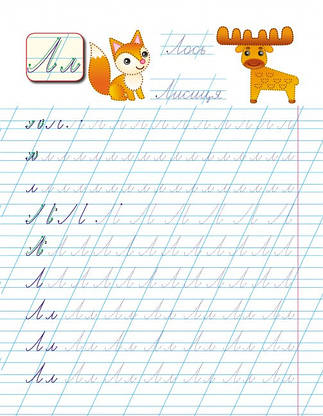 Лл
Лось
Лисиця
л л л л л л л л л л л л л л л
л л л л л л л л л л л л л л л
Л Л Л Л Л Л Л Л Л Л Л
Л Л Л Л Л Л Л Л Л Л Л
Лл Лл Лл Лл Лл Лл Лл
Лл Лл Лл Лл Лл Лл Лл
Лл Лл Лл Лл Лл Лл Лл